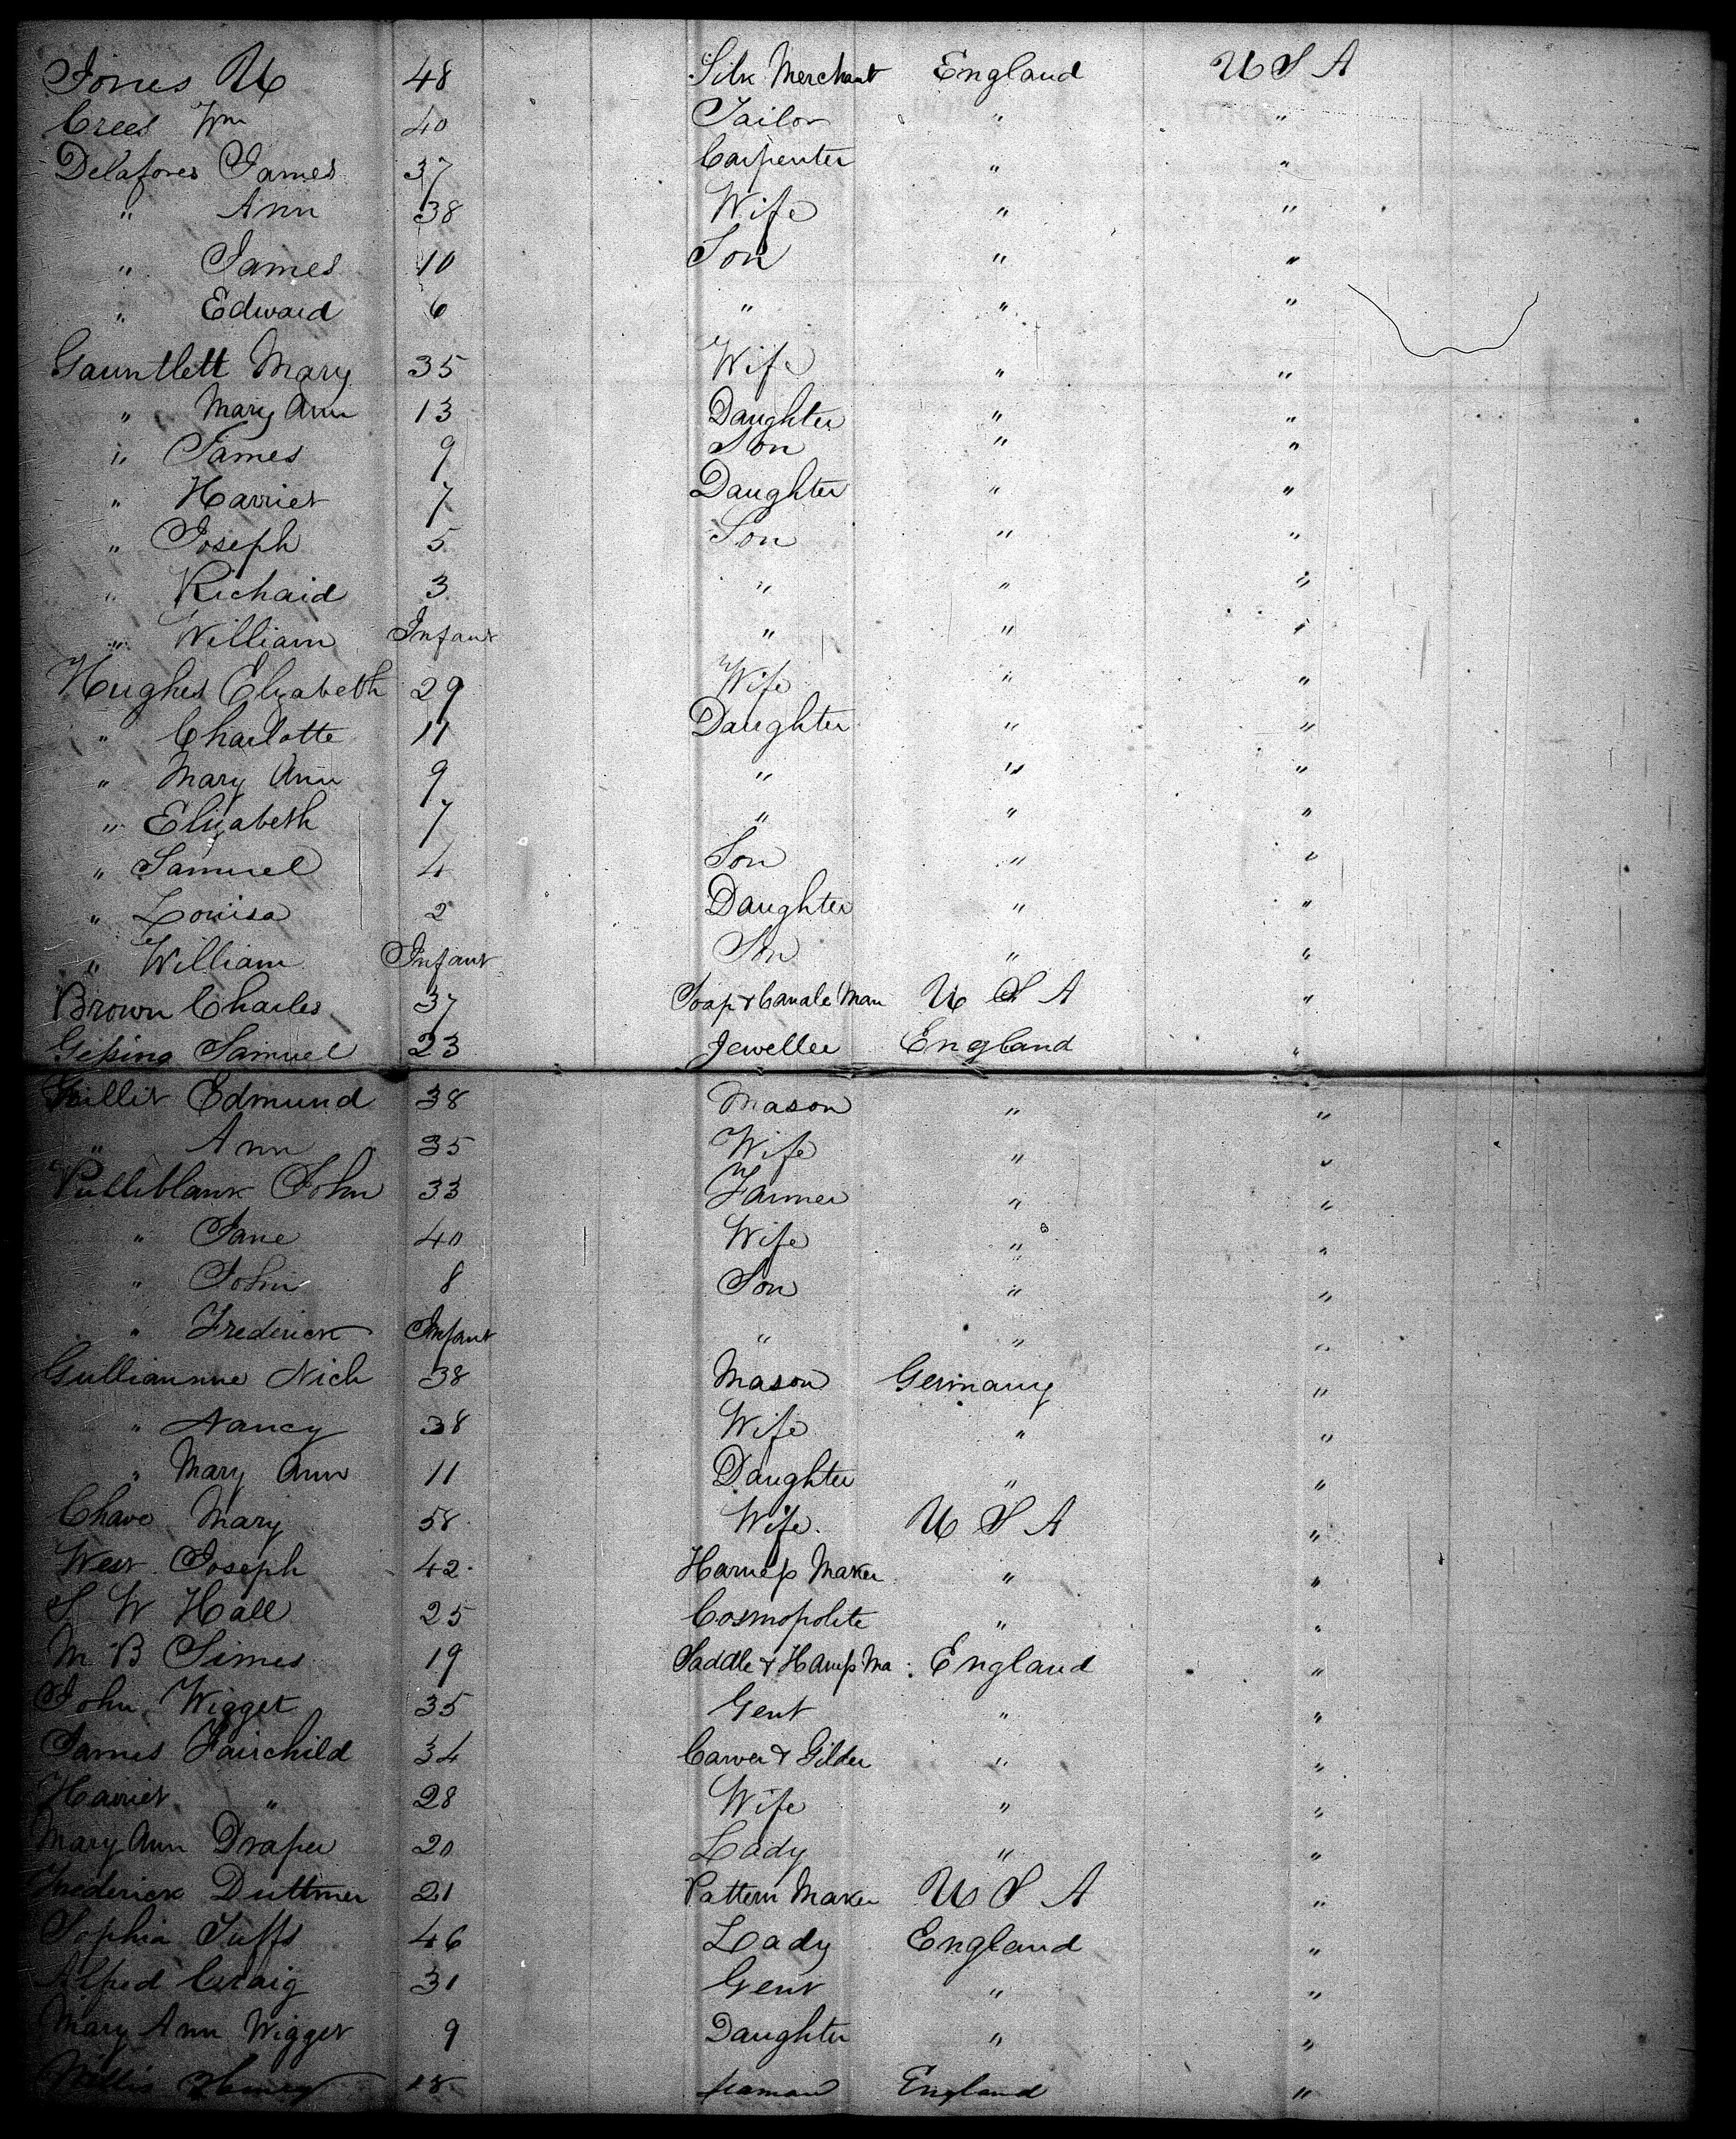 Jones U 48 Silk Merchant England U S A
Crees Wm 40 Tailor " "
Delafores James 37 Carpenter " "
" Ann 38 Wife " "
" James 10 Son " "
" Edward 6 " " "
Gauntlett Mary 35 Wife " "
" Mary Ann 13 Daughter " "
" James 9 Son " "
" Harriet 7 Daughter " "
" Joseph 5 Son " "
" Richard 3 " " "
" William Infant " " "
Hughes Elizabeth 29 Wife " "
" Charlotte 11 Daughter " "
" Mary Ann 9 " " "
" Elizabeth 7 " " "
" Samuel 4 Son " "
" Louisa 2 Daughter " "
" William Infant Son " "
Brown Charles 37 Soap & Candle Man U S A "
Gissing Samuel 23 Jeweller England "
Edmund 38 Mason " "
" Ann 35 Wife " "
Pulliblank John 33 Farmer " "
" Jane 40 Wife " "
" John 8 Son " "
" Frederick Infant " " "
Gullianne Nich 38 Mason Germany "
" Nancy 38 Wife " "
" Mary Ann 11 Daughter " "
Chave Mary 58 Wife U S A "
West Joseph 42 Harness Maker " "
S W Hall 25 Cosmopolite " "
M B Simes 19 Saddle & Harness Ma England "
John Wigget 35 Gent " "
James Fairchild 34 Carver & Gilder " "
Harriet " 28 Wife " "
Mary Ann Draper 20 Lady " "
Frederick Duttmer 21 Pattern Maker U S A "
Sophia Tuffs 46 Lady England "
Alfred Craig 31 Gent " "
Mary Ann Wigget 9 Daughter " "
Willis Henry 18 seaman England "